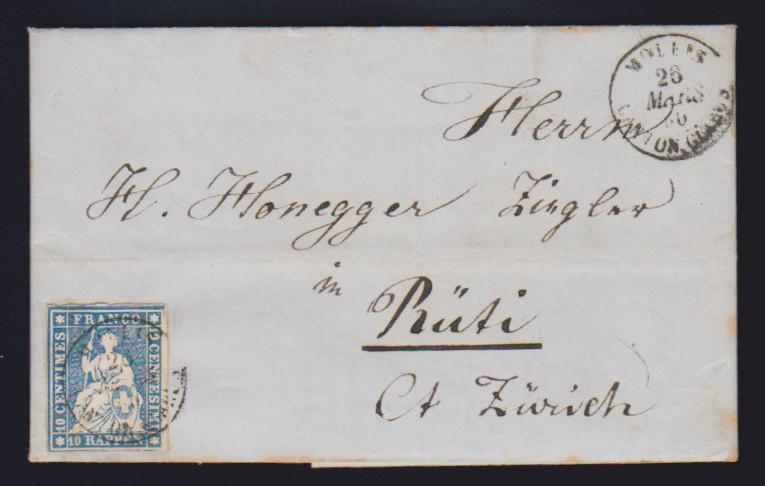 MOLLIS
Mars
CANTON GLARUS
Herrn
H. Honegger Ziegler
in
Rüti
Ct Zürich
FRANCO
10 CENTIMES
10 CENTESIMI
10 RAPPEN